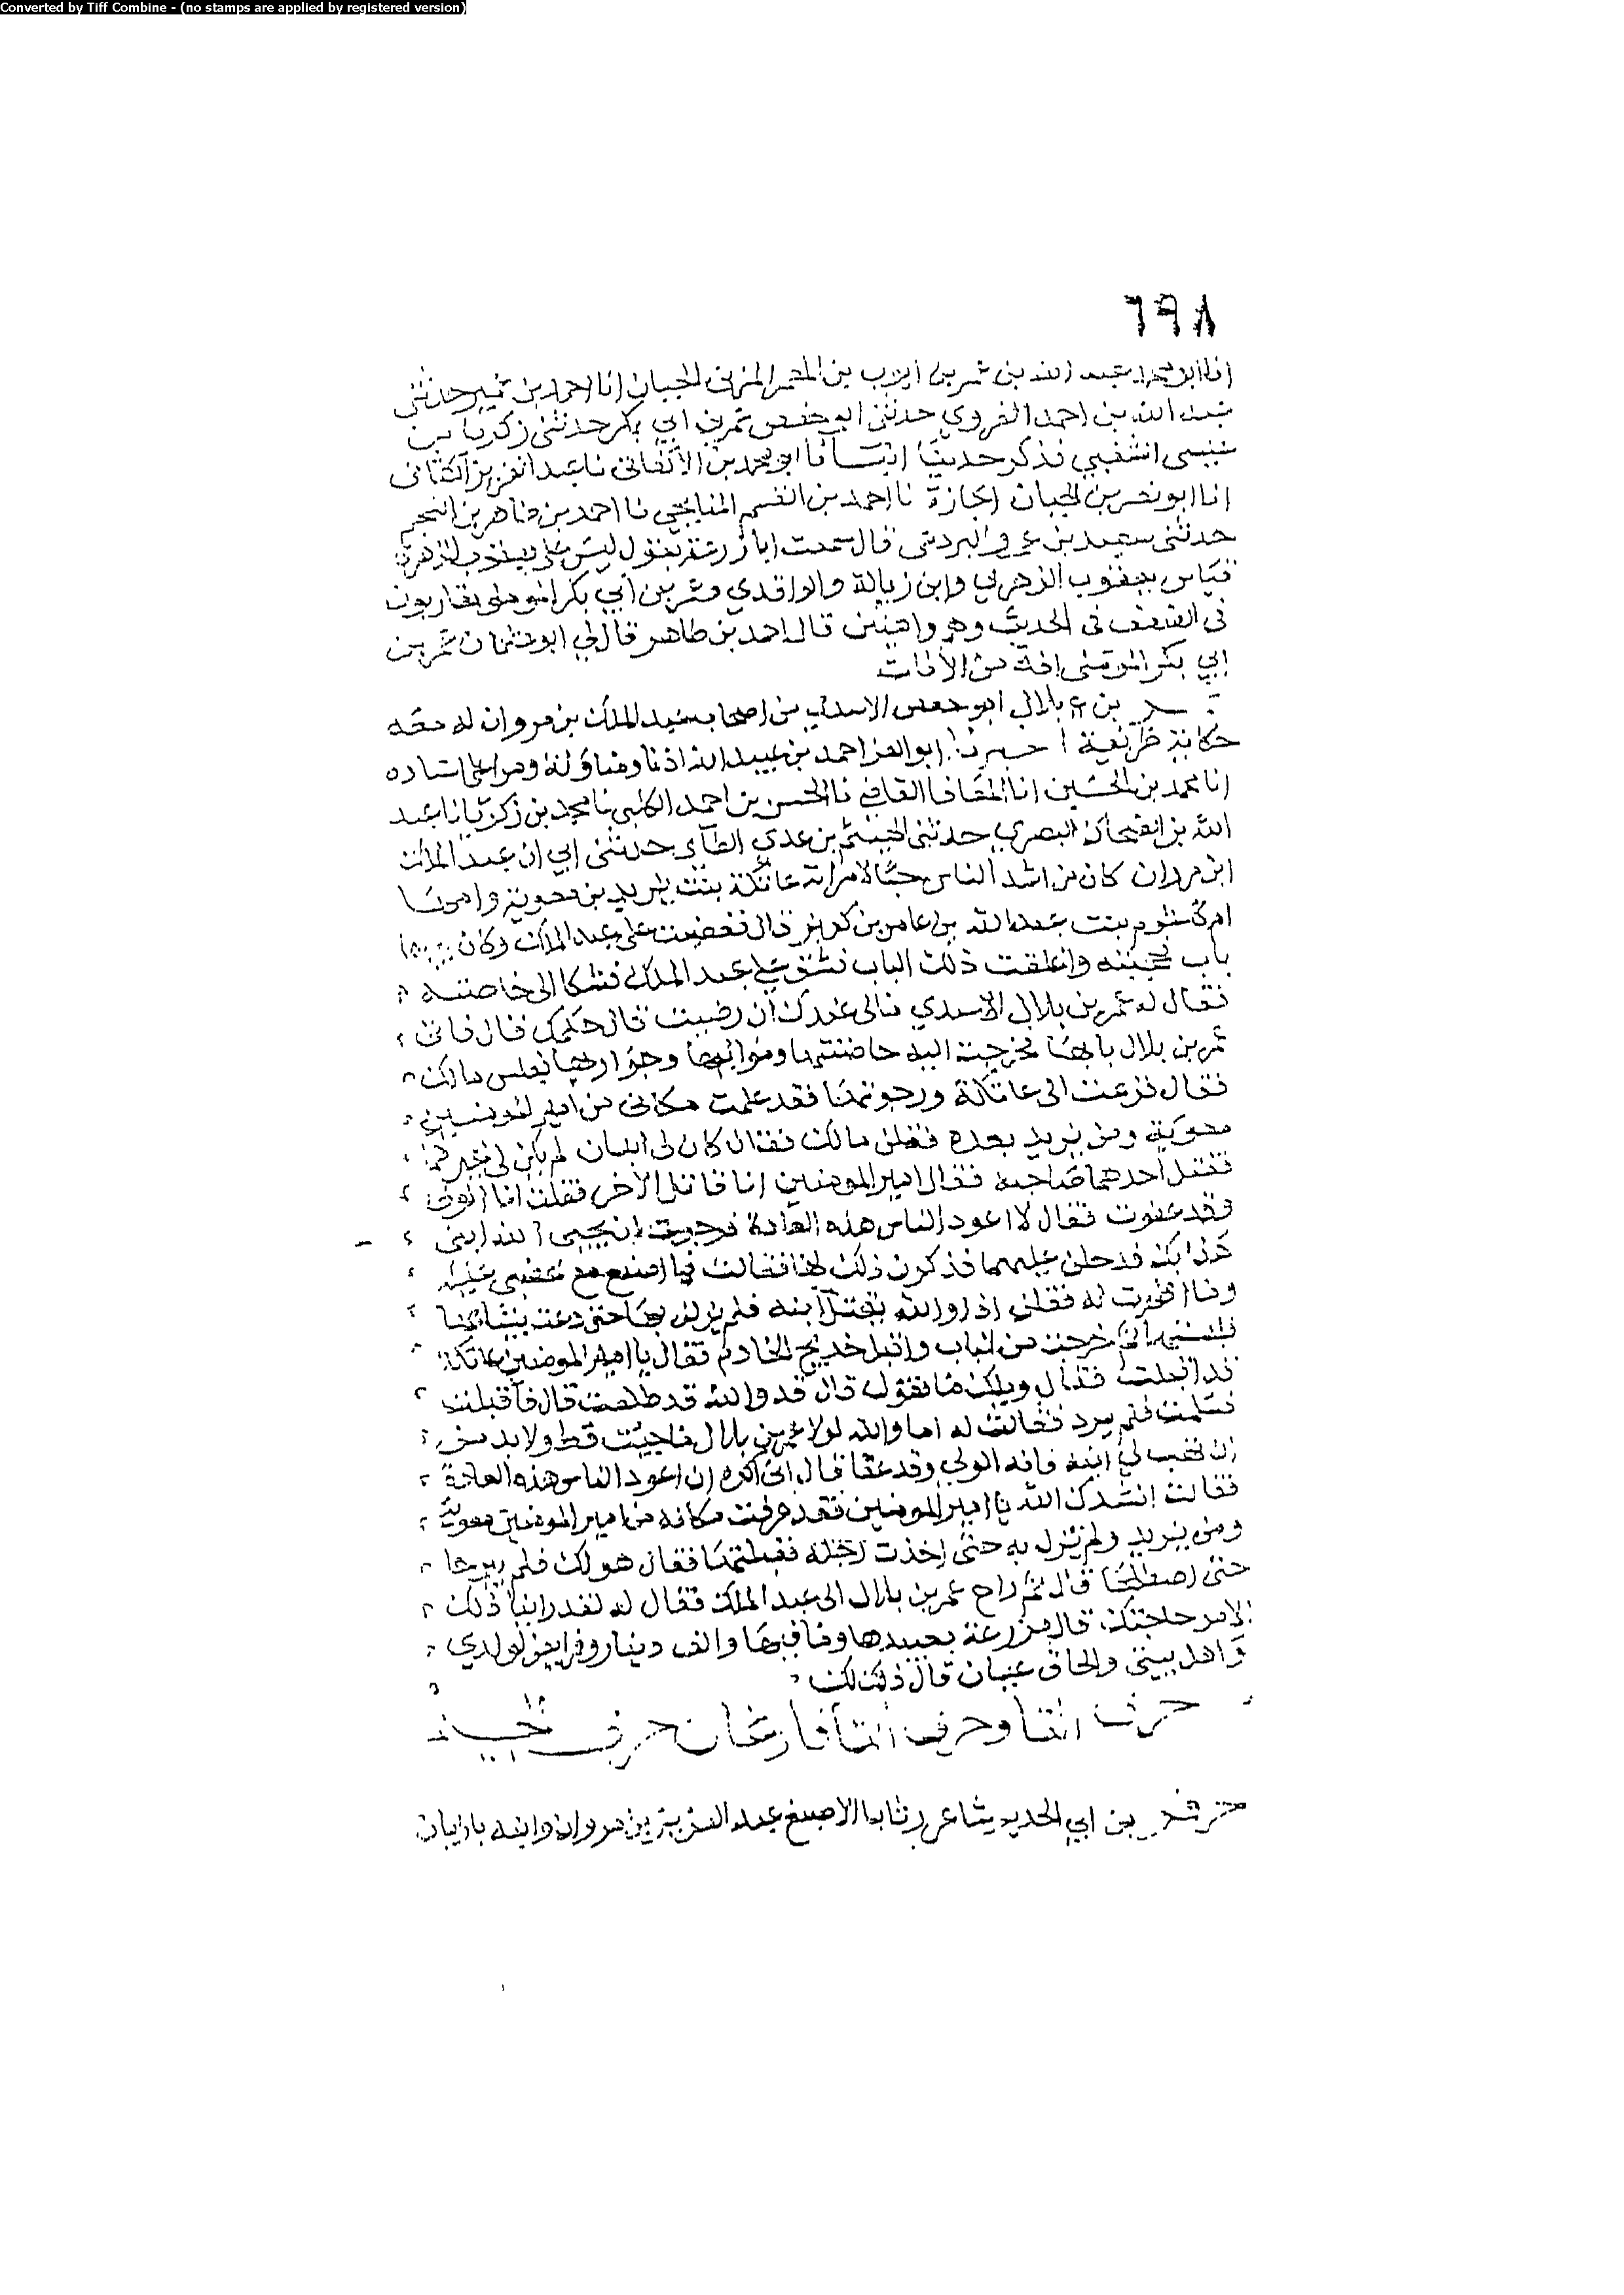 Converted by Tiff Combine - (no stamps are applied by registered version)
٦٩٨
عبد الله بن عمر بن ايوب بن المعمر المزنى الجبان انا احمد بن عمير حدثنى
عبد الله بن احمد الفروي حدثنى ابو حفص عمر بن ابي بكر حدثنى زكريا بن
عيسى الشعبي فذكر حديثا انبانا ابو محمد بن الاكفانى نا عبد العزيز الكتانى
انا ابو نصر بن الجبان اجازة نا احمد بن القسم الميانجي نا احمد بن طاهر بن النجم
حدثنى سعيد بن عمرو البردعى قال سمعت ابا زرعة يقول ليس على يعقوب الزهري
قياس يعقوب الزهري وابن زبالة والواقدي وعمر بن ابي بكر الموملى يقاربون
فى الضعف فى الحديث وهم واهيين قال احمد بن طاهر قال لي ابو عثمان عمر بن
ابي بكر الموملى افة من الافات
عمر بن بلال ابو حفص الاسدي من اصحاب عبد الملك بن مروان له معه
حكاية ظريفة اخبرنا ابو العز احمد بن عبيد الله اذنا ومناولة وقرا على اسناده
انا محمد بن الحسين انا المعافا القاضي نا الحسن بن احمد الكلبي نا محمد بن زكريا نا عبد
الله بن الضحاك البصري حدثنى الهيثم بن عدي الطاى حدثنى ابي ان عبد الملك
ابن مروان كان من اشد الناس حبا لامراته عاتكة بنت يزيد بن معوية وامها
ام كلثوم بنت عبد الله بن عامر بن كريز قال فغضبت على عبد الملك وكان بينهما
باب فحجبته واغلقت ذلك الباب فشق على عبد الملك فشكا الى خاصته
فقال له عمر بن بلال الاسدي مالى عندك ان رضيت قال حكمك قال فاتى
عمر بن بلال بابها فخرجت اليه حاضنتها ومواليها وجواريها فقلن مالك
فقال فزعت الى عاتكة ورجوتها فقد علمت مكانى من امير المومنين
معوية ومن يزيد بعده فقلن مالك فقال كان لى ابنان لم يكن لى غيرهما
فقتل احدهما صاحبه فقال امير المومنين انا قاتل الاخر فقلت انا الولى
وقد عفوت فقال لا اعود الناس هذه العادة فرجوت ان يحيى الله ابنى
هذا بك فدخلن عليها فذكرن ذلك لها فقالت فما اصنع مع غضبي عليه
وما اظهرت له فقلن اذا والله يقتل ابنه فلم يزلن بها حتى دعت بثيابها
فلبستها ثم خرجت من الباب واقبل خديج الخادم فقال يا امير المومنين عاتكة
قد اقبلت فقال ويلك ما تقول قال قد والله قد طلعت قال فاقبلت
فسلمت فلم يرد فقالت له اما والله لولا عمر بن بلال ما جيت قط ولا بد من
ان تهب لي ابنه فانه الولي وقد عفا قال انى اكره ان اعود الناس هذه العادة
فقالت انشدك الله يا امير المومنين فقد عرفت مكانه من امير المومنين معوية
ومن يزيد ولم تزل به حتى اخذت رجله فقبلتها فقال هو لك فلم يبرحا
حتى اصطلحا قال ثم راح عمر بن بلال الى عبد الملك فقال له لقد راينا ذلك
الامر حاجتك قال مزرعة بعبيدها وما فيها والف دينار وفرايض لولدي
واهل بيتى والحاق عيالى قال ذلك لك
حرف التا وحرف الثا فارغان حرف الجيم
عمر بن ابي الحديد شاعر رثا ابا الاصبغ عبد العزيز بن مروان وابنه بابيات